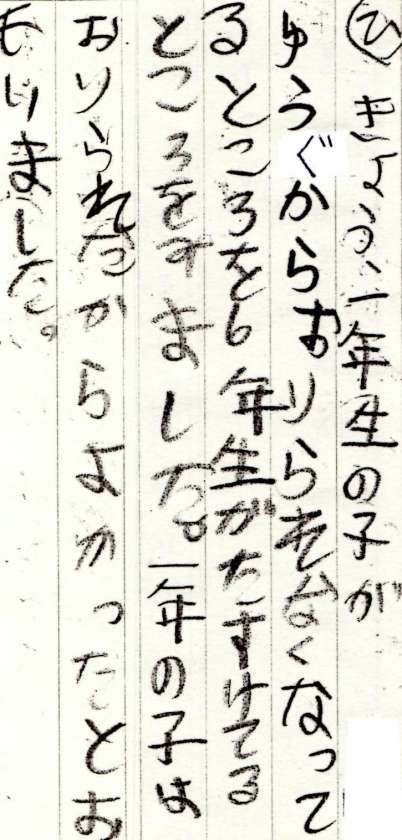 ひ きょう、一年生の子が
ゆうぐからおりられなくなって
るところを6年生がたすけてる
ところをすました。一年の子は
おりられたからよかったとお
もいました。